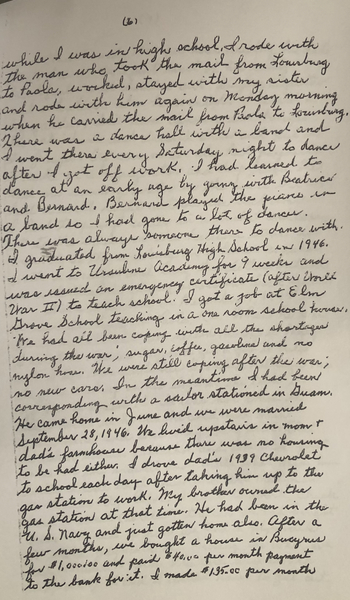 (6)
while I was in high school, I rode with
the man who took the mail from Louisburg
to Paola, worked, stayed with my sister
and rode with him again on Monday morning
when he carried the mail from Paola to Louisburg.
There was a dance hall with a band and
I went there every Saturday night to dance
after I got off work. I had learned to
dance at an early age by going with Beatrice
and Bernard. Bernard played the piano in
a band so I had gone to a lot of dances.
There was always someone there to dance with.
I graduated from Louisburg High School in 1946.
I went to Ursuline Academy for 9 weeks and
was issued an emergency certificate (after World
War II) to teach school. I got a job at Elm
Grove School teaching in a one room school house.
We had all been coping with all the shortages
during the war; sugar, coffee, gasoline and no
nylon hose. We were still coping after the war;
no new cars. In the meantime I had been
corresponding with a sailor stationed in Guam.
He came home in June and we were married
September 28, 1946. We lived upstairs in mom &
dad's farmhouse because there was no housing
to be had either. I drove dad's 1939 Chevrolet
to school each day after taking him up to the
gas station to work. My brother owned the
gas station at that time. He had been in the
U.S. Navy and just gotten home also. After a
few months, we bought a house in Bucyrus
for $1,000.00 and paid $40.00 per month payment
to the bank for it. I made $135.00 per month